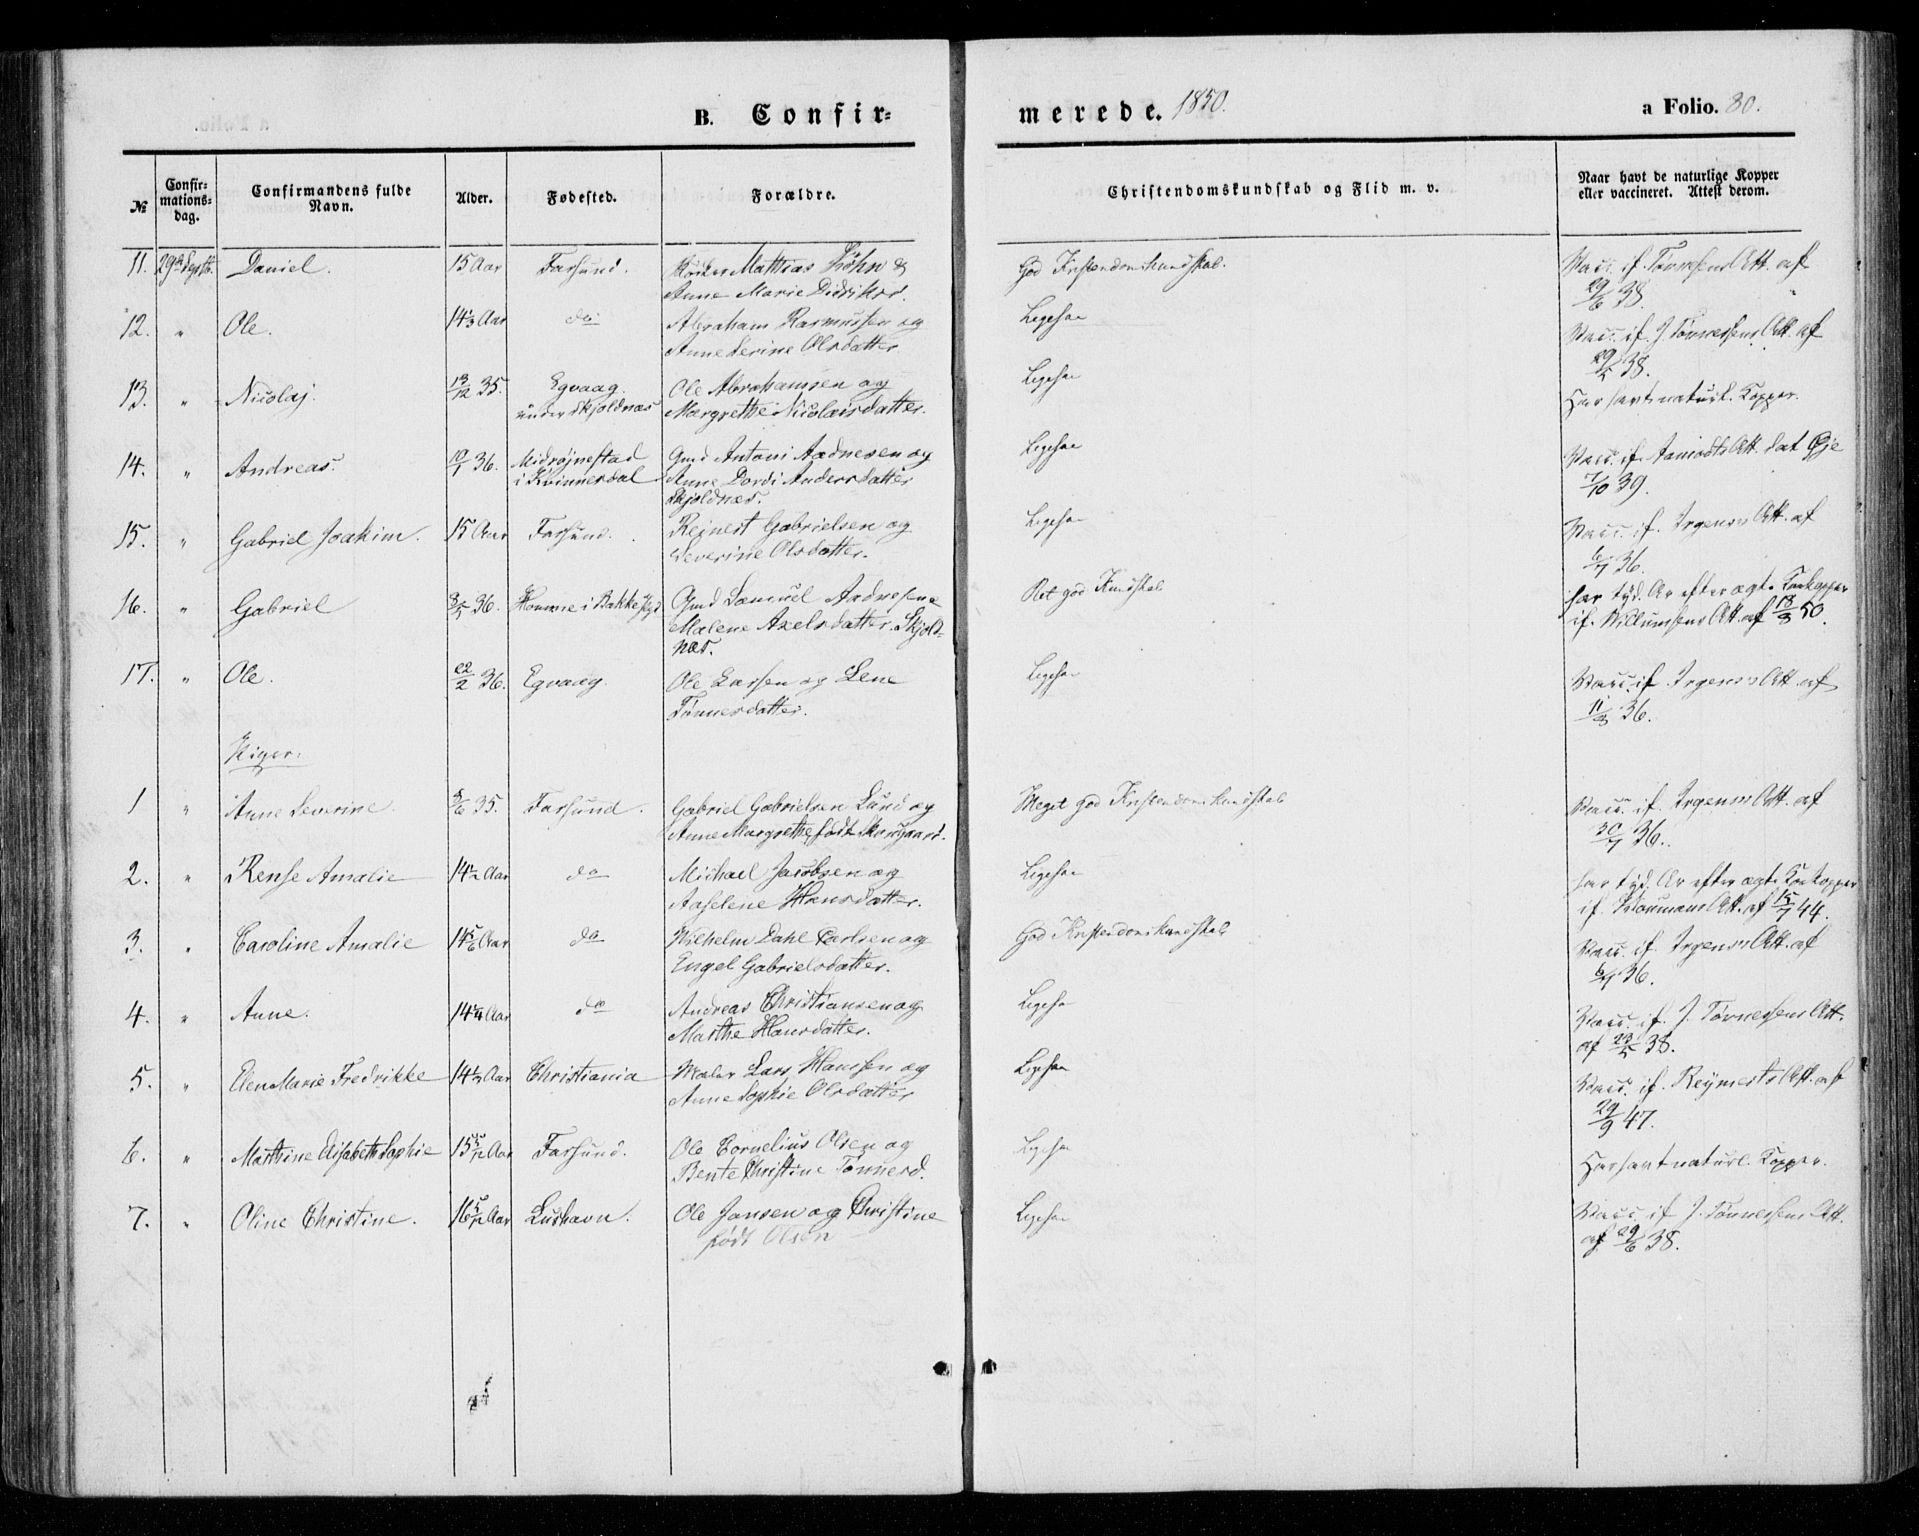 B. Confir-
merede. 1850.
a Folio. 80.
№
Confir-
mations-
dag.
Confirmandens fulde
Navn.
Alder.
Fødested.
Forældre.
Christendomskundskab og Flid m. v.
Naar havt de naturlige Kopper
eller vaccineret. Attest derom.
11. 29de Septbr. Daniel. 15 Aar Farsund. Mathias Løhn &
Anne Marie Didriksd.
God Kristendomskundskab.
Vacc. if. Tønnesens Att. af
29/6 38.
12. " Ole. 14 1/3 Aar do Abraham Rasmussen og
Anne Serine Olsdatter.
Ligesaa
Vacc. if. J. Tønnessens Att. af
29/5 38.
13. " Nicolaj. 13/12 35. Egvaag
under Skjoldnæs
Ole Abrahamsen og
Margrethe Nicolaisdatter.
Ligesaa
Har havt naturl. Kopper.
14. " Andreas. 10/1 36. Midrøjnestad
i Kvinnesdal
Gmd Antoni Aadnesen og
Anne Dordi Andersdatter
Skjoldnæs.
Ligesaa
Vacc. if. Aamodts Att. dat Øje
7/10 39.
15. " Gabriel Joakim. 15 Aar Farsund. Reinert Gabrielsen og
Severine Olsdatter.
Ligesaa
Vacc. if. Irgens's Att. af
6/7 36.
16. " Gabriel 3/5 36. Homme i Bakke Sogd Gmd Samuel Aadnesen &
Malene Axelsdatter. Skjold-
næs.
Ret god Kundskab
har tyd. Ar efter ægte Koekopper
if. Willumsens Att. af 18/8 50.
17. " Ole. 22/2 36. Egvaag. Ole Larsen og Lene
Tønnesdatter.
Ligesaa
Vacc. if. Irgens's Att. af
11/8 36.
Piger.
1 " Anne Severine. 5/6 35. Farsund. Gabriel Gabrielsen Lund og
Anne Margrethe, født
Meget god Kristendomskundskab
Vacc. if. Irgens's Att. af
30/7 36.
2. " Rense Amalie 14 1/2 Aar do Michael Jacobsen og
Aaselene Hansdatter.
Ligesaa
har tyd. Ar efter ægte Koekopper
if. Att. af 15/7 44.
3. " Caroline Amalie 14 5/6 Aar do Wilhelm Dahl Carlsen og
Engel Gabrielsdatter.
God Kristendomskundskab
Vacc. if. Irgens's Att. af
6/7 36.
4. " Anne. 14 1/4 Aar do Andreas Christiansen og
Marthe Hansdatter.
Ligesaa
Vacc. if. J. Tønnessens Att.
af 23/5 38.
5. " Elen Marie Fredrikke 14 1/2 Aar Christiania Maler Lars Hansen og
Anne Sophie Olsdatter
Ligesaa
Vacc. if. Reymerts Att. af
29/9 47.
6. " Marthine Elisabeth Sophie 15 5/12 Aar Farsund. Ole Cornelius Olsen og
Bente Christine Tønnesd.
Ligesaa
Har havt naturl. Kopper.
7. " Oline Christine. 16 5/12 Aar Lushavn. Ole Jansen og Christine
født Olsen
Ligesaa
Vacc. if. J. Tønnessens Att.
af 29/6 38.